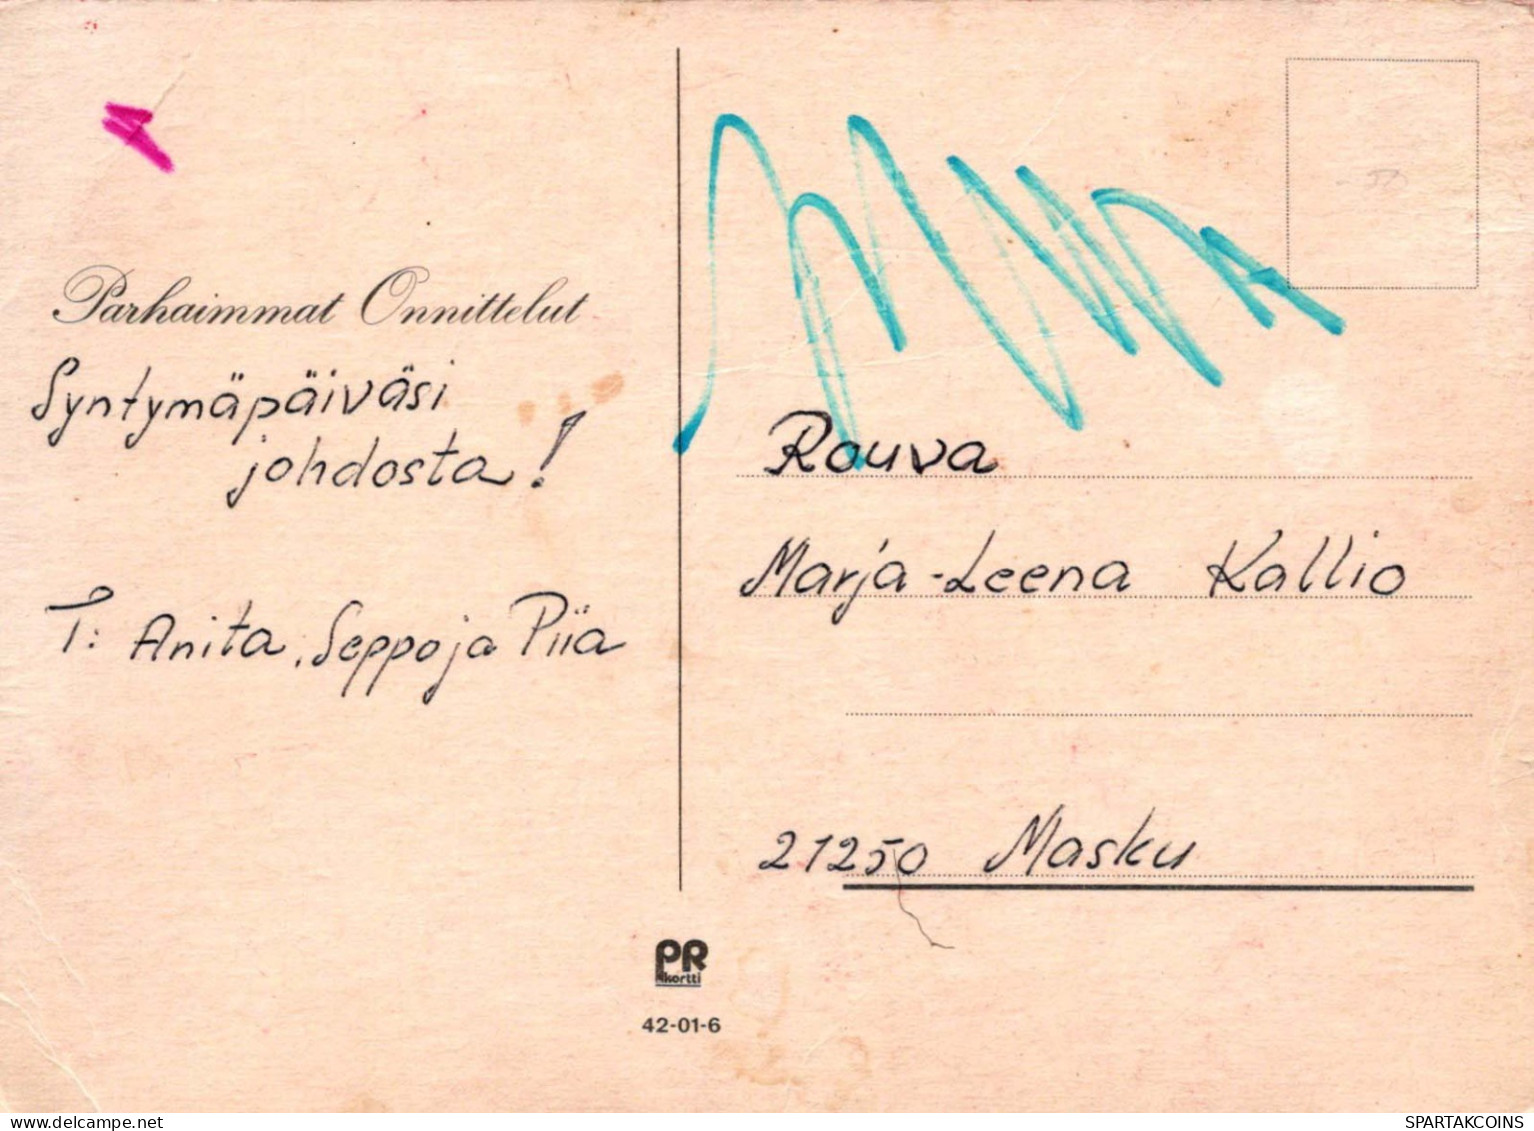 Parhaimmat Onnittelut
Syntymäpäiväsi
johdosta!
T: Anita, Seppo ja Piia
Rouva
Marja-Leena Kallio
21250 Masku
PR
kortti
42-01-6
www.delcampe.net
SPARTAKCOINS